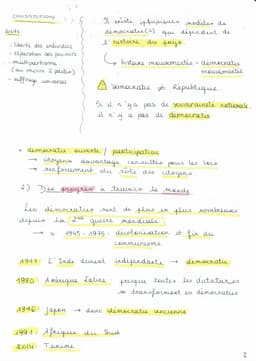 CONSTITUTION
écrite
- liberté des individus
- séparation des pouvoirs
- multipartisme
(au moins 2 partis)
- suffrage universel
Il existe plusieurs modèles de
démocratie(s) qui dépendent de
l'histoire du pays.
↳ histoire mouvementée = démocratie
mouvementée
⚠ Démocratie ≠ République
Si il n'y a pas de souveraineté nationale,
il n'y a pas de démocratie
• démocratie ouverte / participative
→ citoyens davantage consultés pour les lois
→ renforcement du rôle des citoyens
2) Des progrès à travers le monde
Les démocraties sont de plus en plus nombreuses
depuis la 2nde guerre mondiale :
→ 1945-1975 : décolonisation et fin du
communisme
1947 : L'Inde devient indépendante → démocratie
1980 : Amérique Latine : presque toutes les dictatures
se transforment en démocraties
1946 : Japon → donc démocratie ancienne
1991 : Afrique du Sud
2014 : Tunisie
2